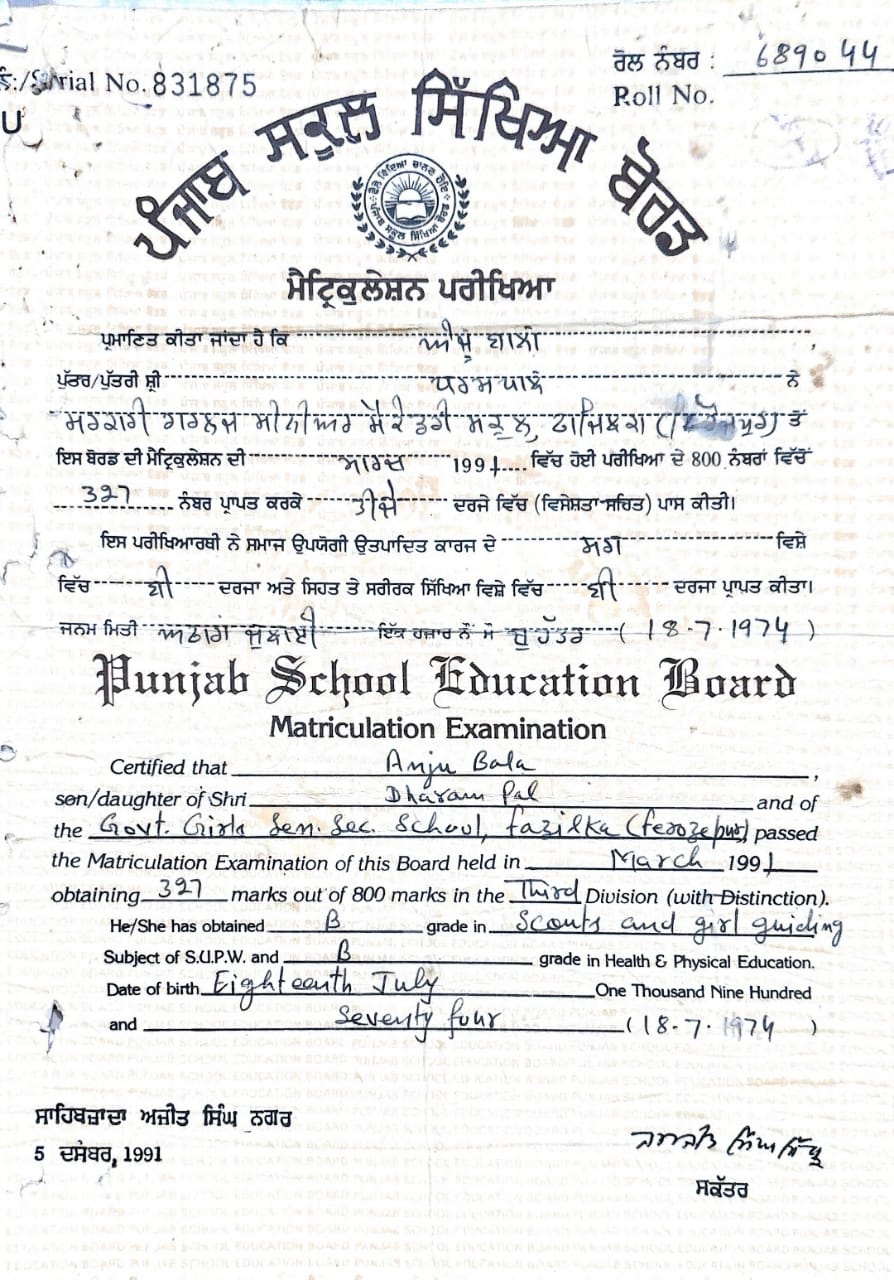 ਨੰ:/Serial No. 831875
ਰੋਲ ਨੰਬਰ : 689044
Roll No.
U
ਪੰਜਾਬ ਸਕੂਲ ਸਿੱਖਿਆ ਬੋਰਡ
ਮੈਟ੍ਰਿਕੁਲੇਸ਼ਨ ਪਰੀਖਿਆ
ਪ੍ਰਮਾਣਿਤ ਕੀਤਾ ਜਾਂਦਾ ਹੈ ਕਿ ਅੰਜੂ ਬਾਲਾ ,
ਪੁੱਤਰ/ਪੁੱਤਰੀ ਸ਼੍ਰੀ ਧਰਮਪਾਲ ਨੇ
ਸਰਕਾਰੀ ਗਰਲਜ ਸੀਨੀਅਰ ਸੈਕੰਡਰੀ ਸਕੂਲ, ਫਾਜਿਲਕਾ (ਫਿਰੋਜਪੁਰ) ਤੋਂ
ਇਸ ਬੋਰਡ ਦੀ ਮੈਟ੍ਰਿਕੁਲੇਸ਼ਨ ਦੀ ਮਾਰਚ 1991 ਵਿੱਚ ਹੋਈ ਪਰੀਖਿਆ ਦੇ 800 ਨੰਬਰਾਂ ਵਿੱਚੋਂ
327 ਨੰਬਰ ਪ੍ਰਾਪਤ ਕਰਕੇ ਤੀਜੇ ਦਰਜੇ ਵਿੱਚ (ਵਿਸੇਸ਼ਤਾ ਸਹਿਤ) ਪਾਸ ਕੀਤੀ।
ਇਸ ਪਰੀਖਿਆਰਥੀ ਨੇ ਸਮਾਜ ਉਪਯੋਗੀ ਉਤਪਾਦਿਤ ਕਾਰਜ ਦੇ ਸਗਗ ਵਿਸ਼ੇ
ਵਿੱਚ ਬੀ ਦਰਜਾ ਅਤੇ ਸਿਹਤ ਤੇ ਸਰੀਰਕ ਸਿੱਖਿਆ ਵਿਸ਼ੇ ਵਿੱਚ ਬੀ ਦਰਜਾ ਪ੍ਰਾਪਤ ਕੀਤਾ।
ਜਨਮ ਮਿਤੀ ਅਠਾਰਾਂ ਜੁਲਾਈ ਇੱਕ ਹਜ਼ਾਰ ਨੌਂ ਸੌ ਚੁਹੱਤਰ (18.7.1974)
Punjab School Education Board
Matriculation Examination
Certified that Anju Bala ,
son/daughter of Shri Dharam Pal and of
the Govt. Girls Sen. Sec. School, Fazilka (Ferozepur) passed
the Matriculation Examination of this Board held in March 1991
obtaining 327 marks out of 800 marks in the Third Division (with Distinction).
He/She has obtained B grade in Scouts and girl guiding
Subject of S.U.P.W. and B grade in Health & Physical Education.
Date of birth Eighteenth July One Thousand Nine Hundred
and Seventy four (18.7.1974)
ਸਾਹਿਬਜ਼ਾਦਾ ਅਜੀਤ ਸਿੰਘ ਨਗਰ
5 ਦਸੰਬਰ, 1991
ਸਕੱਤਰ